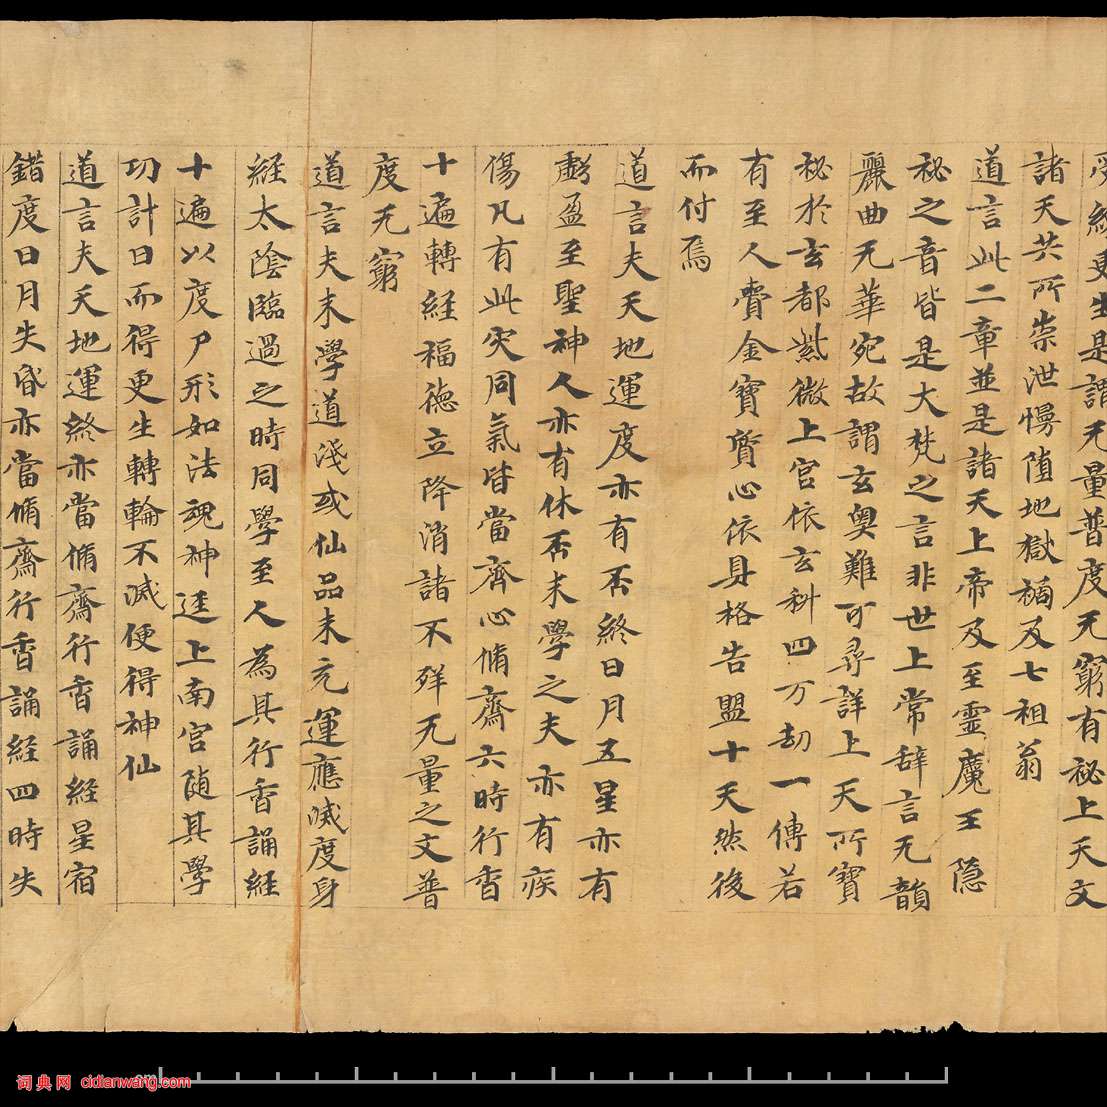 受經更生是謂无量普度无窮有秘上天文
諸天共所崇泄慢墮地獄禍及七祖翁
道言此二章並是諸天上帝及至靈魔王隱
秘之音皆是大梵之言非世上常辞言无韻
麗曲无華宛故謂玄奧難可尋詳上天所寶
秘於玄都紫微上宮依玄科四万劫一傳若
有至人賷金寶質心依具格告盟十天然後
而付焉
道言夫天地運度亦有否終日月五星亦有
虧盈至聖神人亦有休否末學之夫亦有疾
傷凡有此灾同氣皆當齊心脩齋六時行香
十遍轉經福德立降消諸不祥无量之文普
度无窮
道言夫末學道淺或仙品未充運應滅度身
經太陰臨過之時同學至人為其行香誦經
十遍以度尸形如法魂神逕上南宮随其學
功計日而得更生轉輪不滅便得神仙
道言夫天地運終亦當脩齋行香誦經星宿
錯度日月失昏亦當脩齋行香誦經四時失
词典网 cidianwang.com
cm